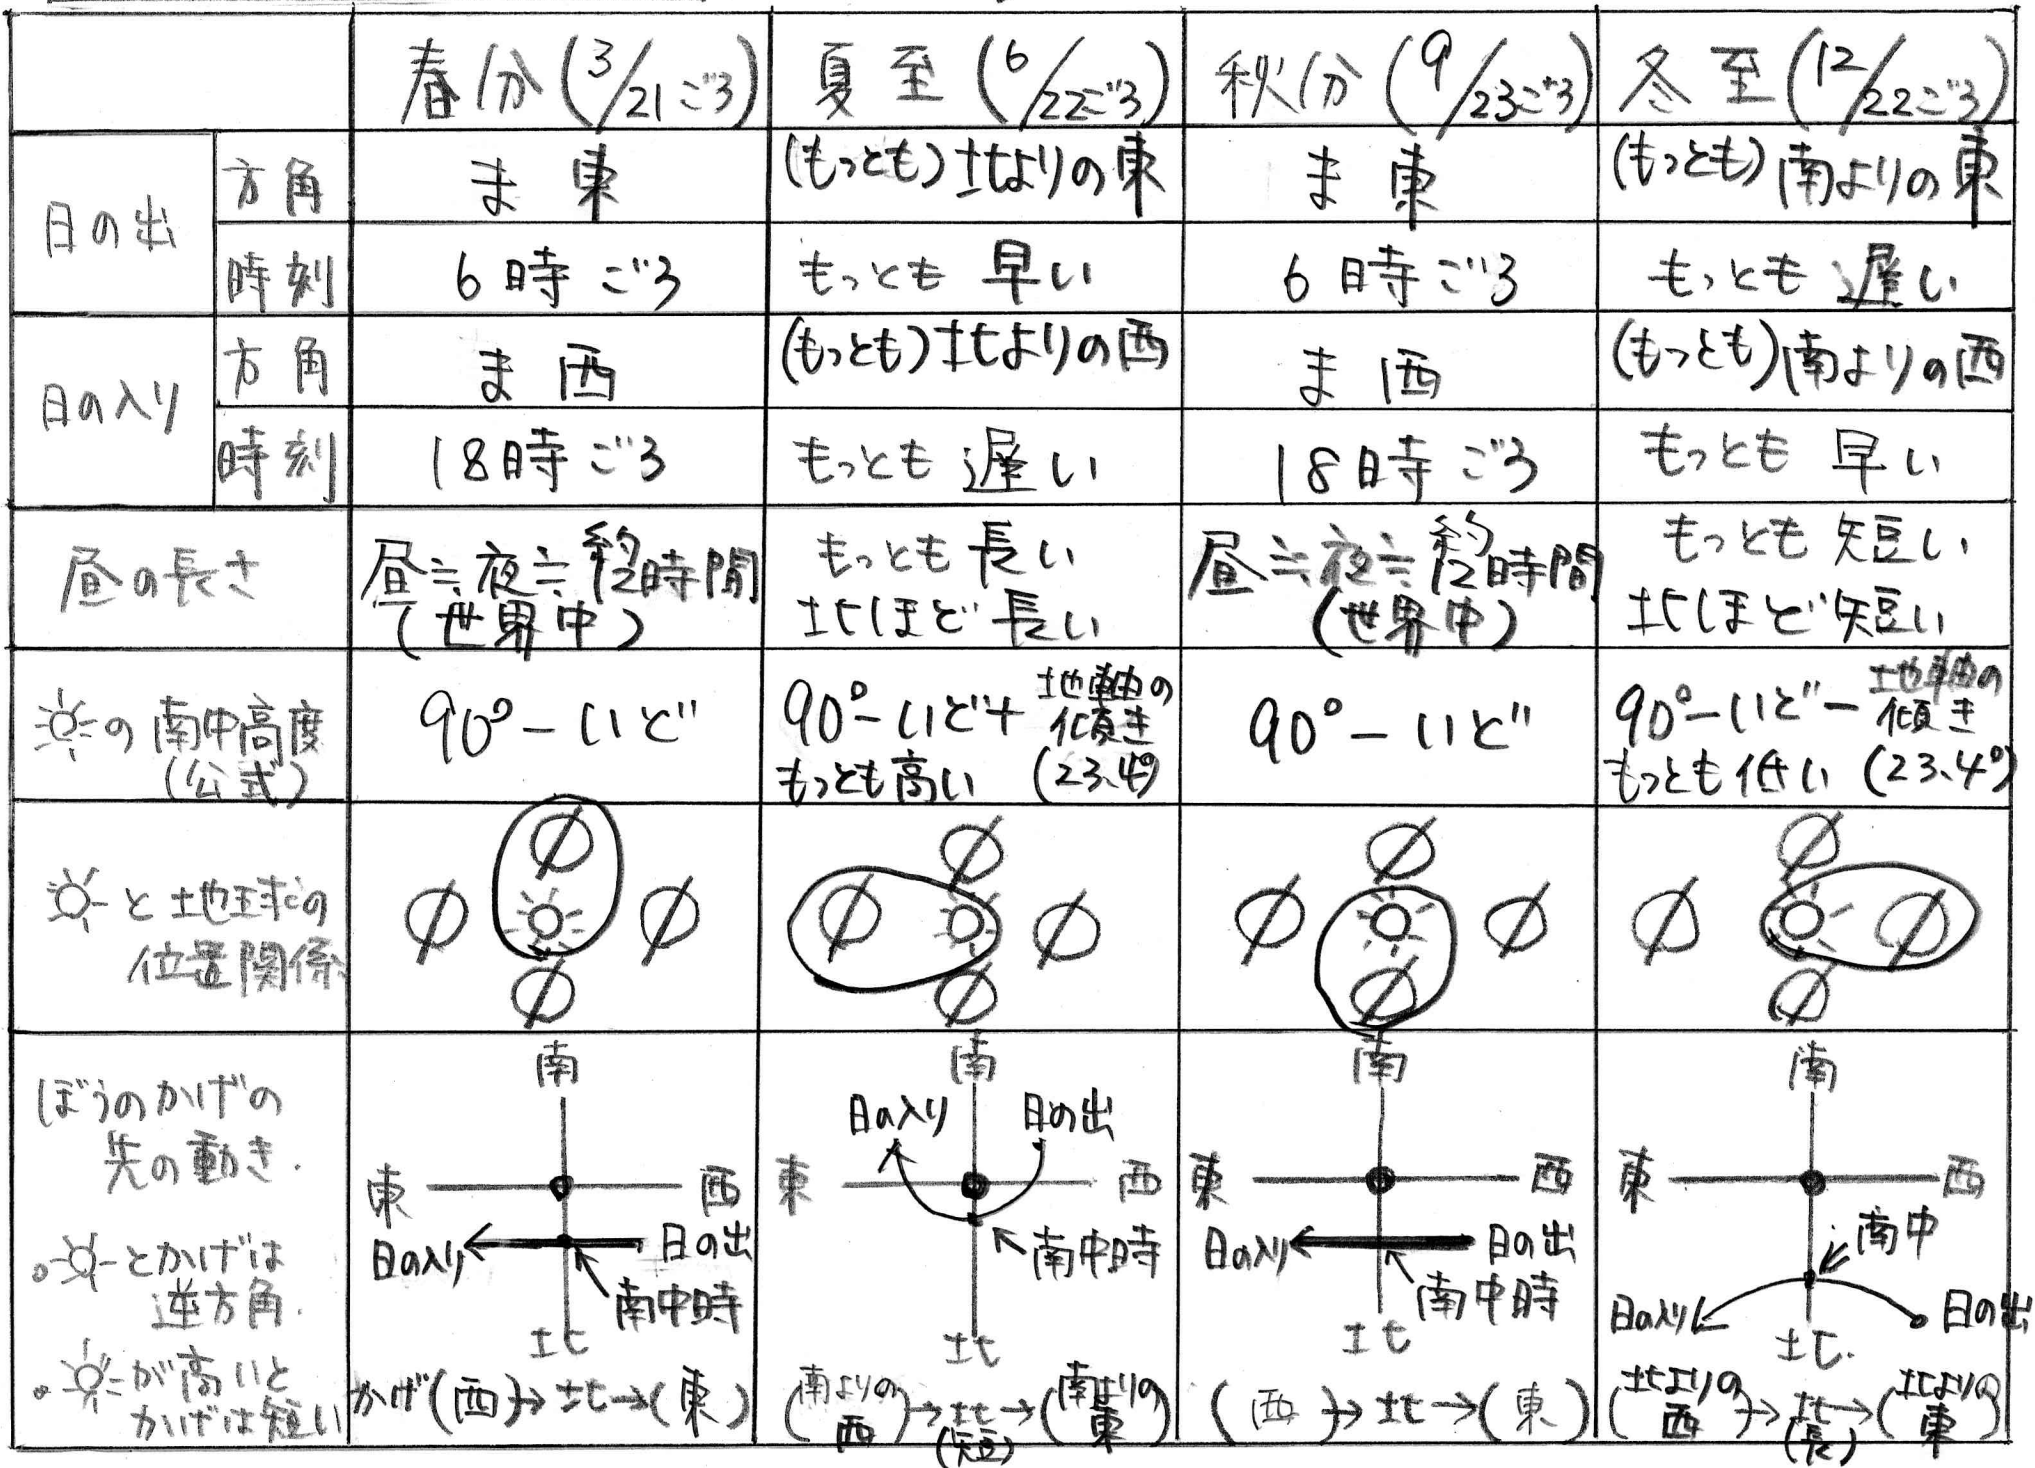 春分(3/21ごろ)
夏至(6/22ごろ)
秋分(9/23ごろ)
冬至(12/22ごろ)
日の出
方角
ま東
(もっとも)北よりの東
ま東
(もっとも)南よりの東
時刻
6時ごろ
もっとも早い
6時ごろ
もっとも遅い
日の入り
方角
ま西
(もっとも)北よりの西
ま西
(もっとも)南よりの西
時刻
18時ごろ
もっとも遅い
18時ごろ
もっとも早い
昼の長さ
昼≒夜≒約12時間
(世界中)
もっとも長い
北ほど長い
昼≒夜≒約12時間
(世界中)
もっとも短い
北ほど短い
の南中高度
(公式)
90°-いど
90°-いど+地軸の傾き
もっとも高い (23.4°)
90°-いど
90°-いど-地軸の傾き
もっとも低い (23.4°)
と地球の
位置関係
ぼうのかげの
先の動き.
。とかげは
逆方角.
。が高いと
かげは短い
南
東
西
日の入り
日の出
南中時
北
かげ(西)→北→(東)
南
日の入り
日の出
東
西
南中時
北
(南よりの西)→北(短)→(南よりの東)
南
東
西
日の入り
日の出
南中時
北
(西)→北→(東)
南
東
西
南中
日の入り
日の出
北.
(北よりの西)→北(長)→(北よりの東)